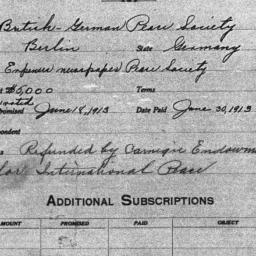 British-German Peace Society
Berlin State Germany
Expenses newspaper Peace Society
$5,000 Terms
Promised June 18, 1913 Date Paid June 30, 1913
pondent
Refunded by Carnegie Endowm
for International Peace
ADDITIONAL SUBSCRIPTIONS
AMOUNT PROMISED PAID OBJECT